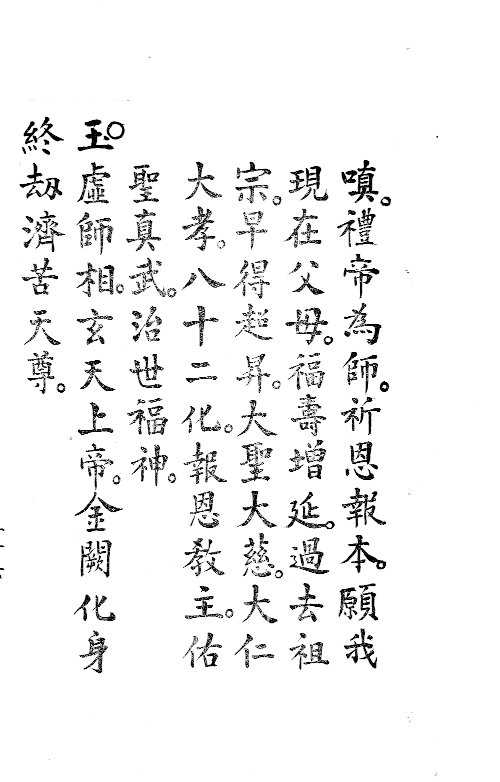 嗔。禮帝為師。祈恩報本。願我
現在父母。福壽增延。過去祖
宗。早得超昇。大聖大慈。大仁
大孝。八十二化。報恩教主。佑
聖真武。治世福神。
玉。虛師相。玄天上帝。金闕化身
終劫濟苦天尊。